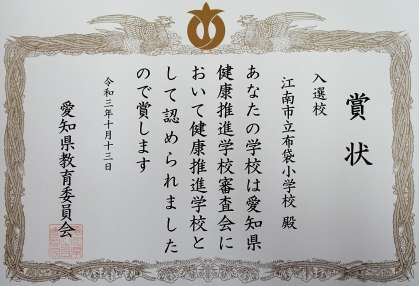 賞状
入選校
江南市立布袋小学校 殿
あなたの学校は愛知県
健康推進学校審査会に
おいて健康推進学校と
して認められました
ので賞します
令和三年十月十三日
愛知県教育委員会